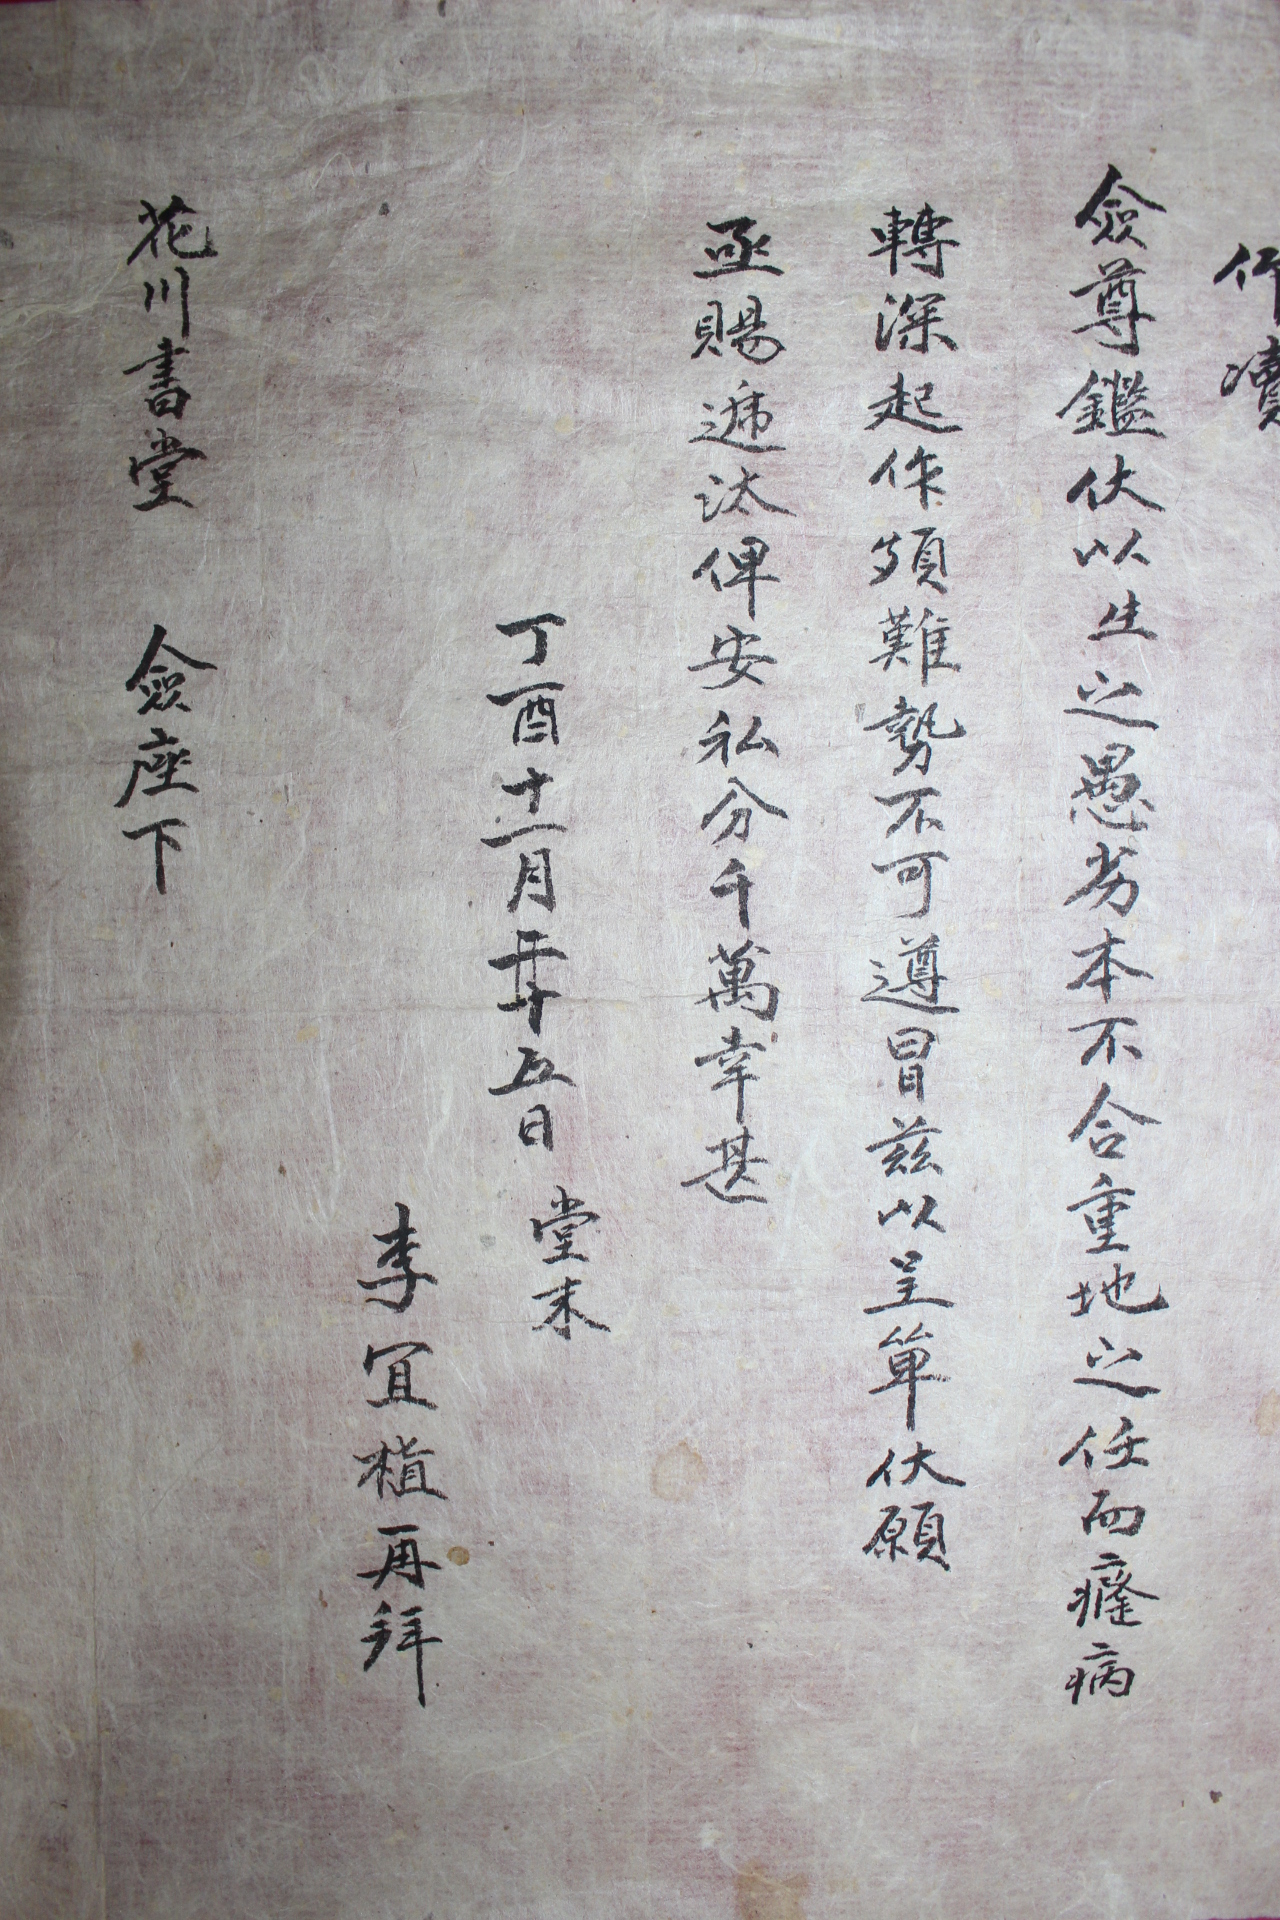 仰瀆
僉尊鑑伏以生之愚劣本不合重地之任而癃病
轉深起作頗難勢不可遵冒玆以呈單伏願
亟賜遞汰俾安私分千萬幸甚
丁酉十二月二十五日 堂末
李宜植再拜
花川書堂 僉座下